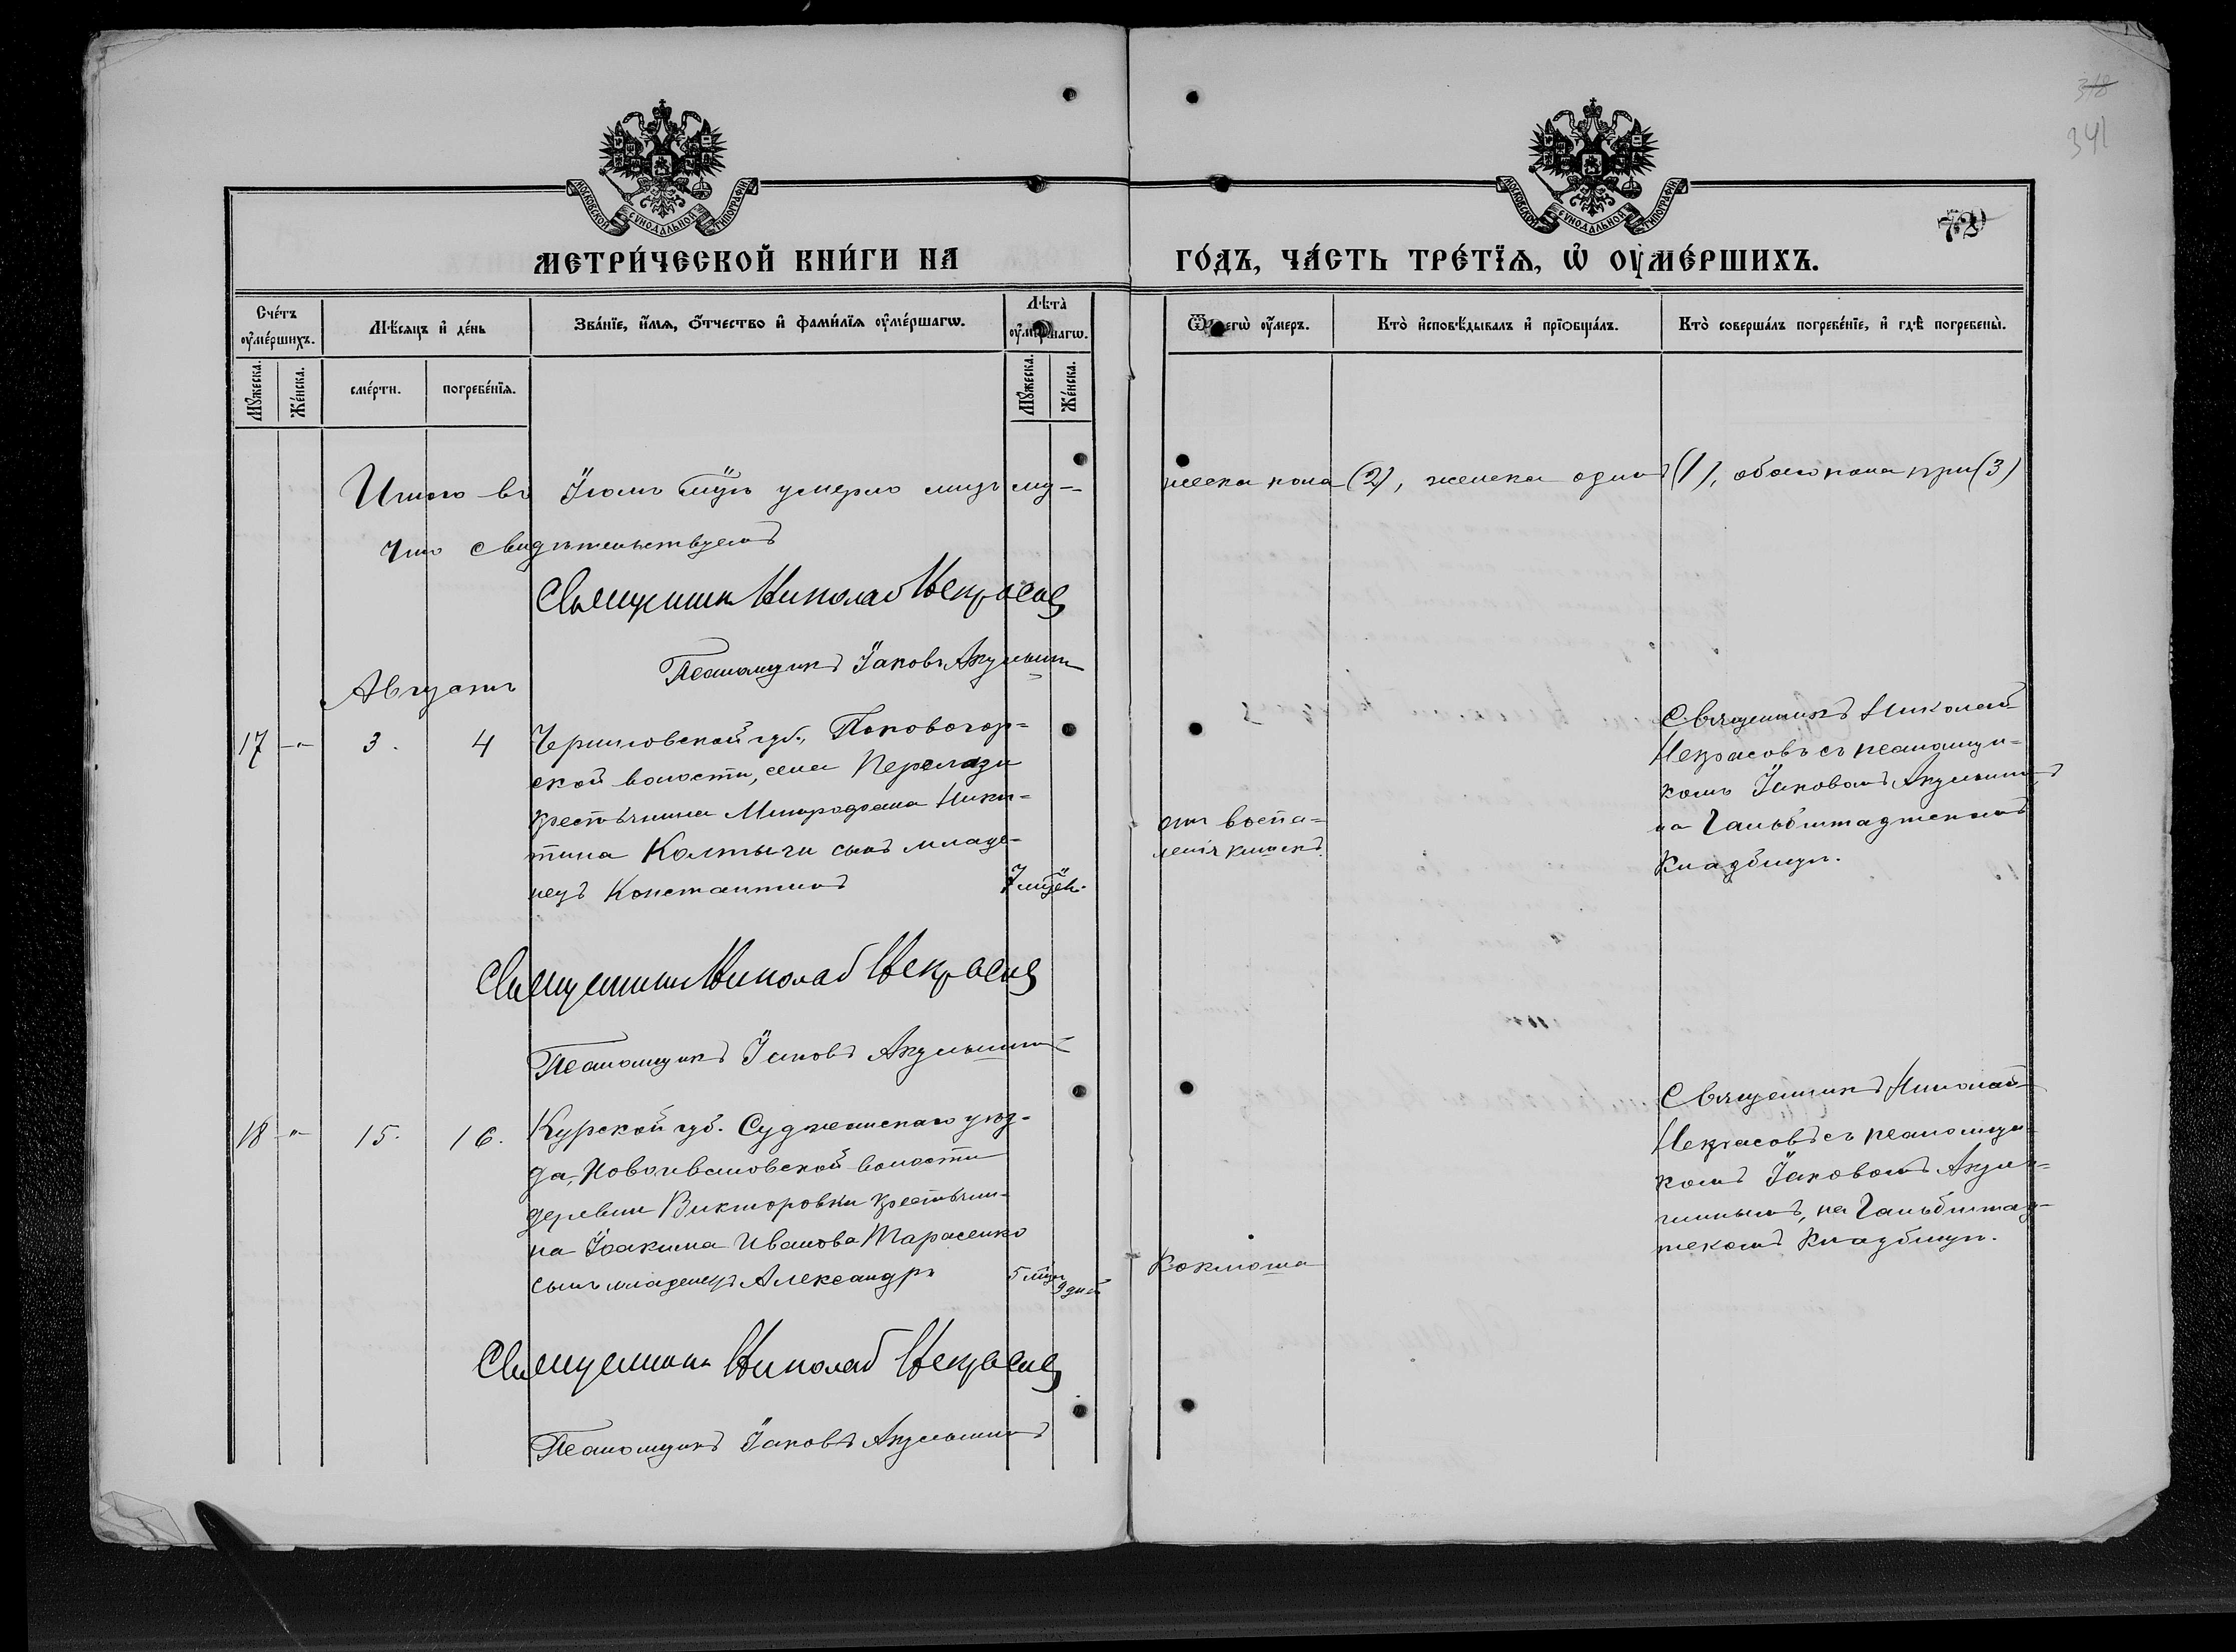 318
341
МОСКОВСКОЙ СѴНОДАЛЬНОЙ ТИПОГРАФІИ
МОСКОВСКОЙ СѴНОДАЛЬНОЙ ТИПОГРАФІИ
72
МЕТРИ́ЧЕСКОЙ КНИ́ГИ НА
ГО́ДЪ, ЧА́СТЬ ТРЕ́ТЇѦ, Ѡ҆ ОУ҆МЕ́РШИХЪ.
Сче́тъ оу҆ме́ршихъ.
Мѣ́сяцъ и҆ де́нь
Зва́нїе, и҆́мѧ, о҆́тчество и҆ фами́лїѧ оу҆ме́ршагѡ.
Лѣта̀ оу҆ме́ршагѡ.
Ѿ чегѡ̀ оу҆́меръ.
Кто̀ и҆сповѣ́дывалъ и҆ прїѡбща́лъ.
Кто̀ соверша́лъ погребе́нїе, и҆ гдѣ̀ погребены̀.
Мꙋ́жеска.
Же́нска.
сме́рти.
погребе́нїѧ.
Мꙋ́жеска.
Же́нска.
Итого въ Іюлѣ мцѣ умерло лицъ му-
жеска пола (2), женска одинъ (1), обоего пола три (3)
Что свидѣтельствуемъ
Священникъ Николай Некрасовъ
Псаломщикъ Іаковъ Акульшинъ
Августъ
17 -"- 3. 4
Черниговской губ., Поповогор=
ской волости, села Перелазы
крестьянина Митрофана Ники=
тина Колтыги сынъ младе=
нецъ Константинъ
7 мцѣв.
отъ воспа=
ленія кишекъ.
Священникъ Николай
Некрасовъ съ псаломщи=
комъ Іаковомъ Акульшинымъ
на Гальбштадтскомъ
Кладбищѣ.
Священникъ Николай Некрасовъ
Псаломщикъ Іаковъ Акульшинъ
18 -"- 15. 16.
Курской губ. Суджанскаго уѣз-
да, Новоивановской волости
деревни Викторовки крестьяни-
на Іоакима Иванова Тарасенко
сынъ младенецъ Александръ
5 мцъ 9 дней
Коклюша
Священникъ Николай
Некрасовъ съ псаломщи=
комъ Іаковомъ Акуль=
шинымъ, на Гальбштад-
тскомъ Кладбищѣ.
Священникъ Николай Некрасовъ
Псаломщикъ Іаковъ Акульшинъ